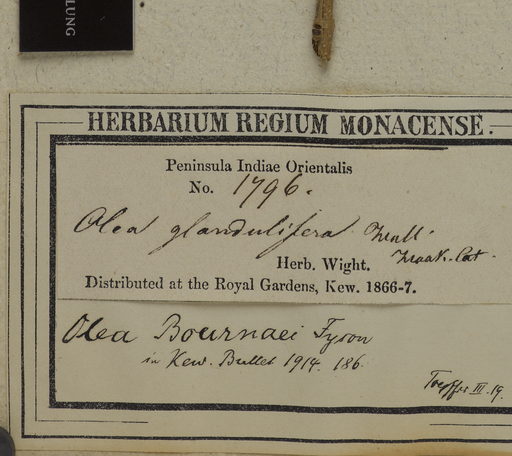 LUNG
HERBARIUM REGIUM MONACENSE.
Peninsula Indiae Orientalis
No. 1796.
Olea glandulifera Wall.
Herb. Wight. Cat.
Distributed at the Royal Gardens, Kew. 1866-7.
Olea Bournaei Fyson
in Kew. Bullet 1914. 186.
III. 19.